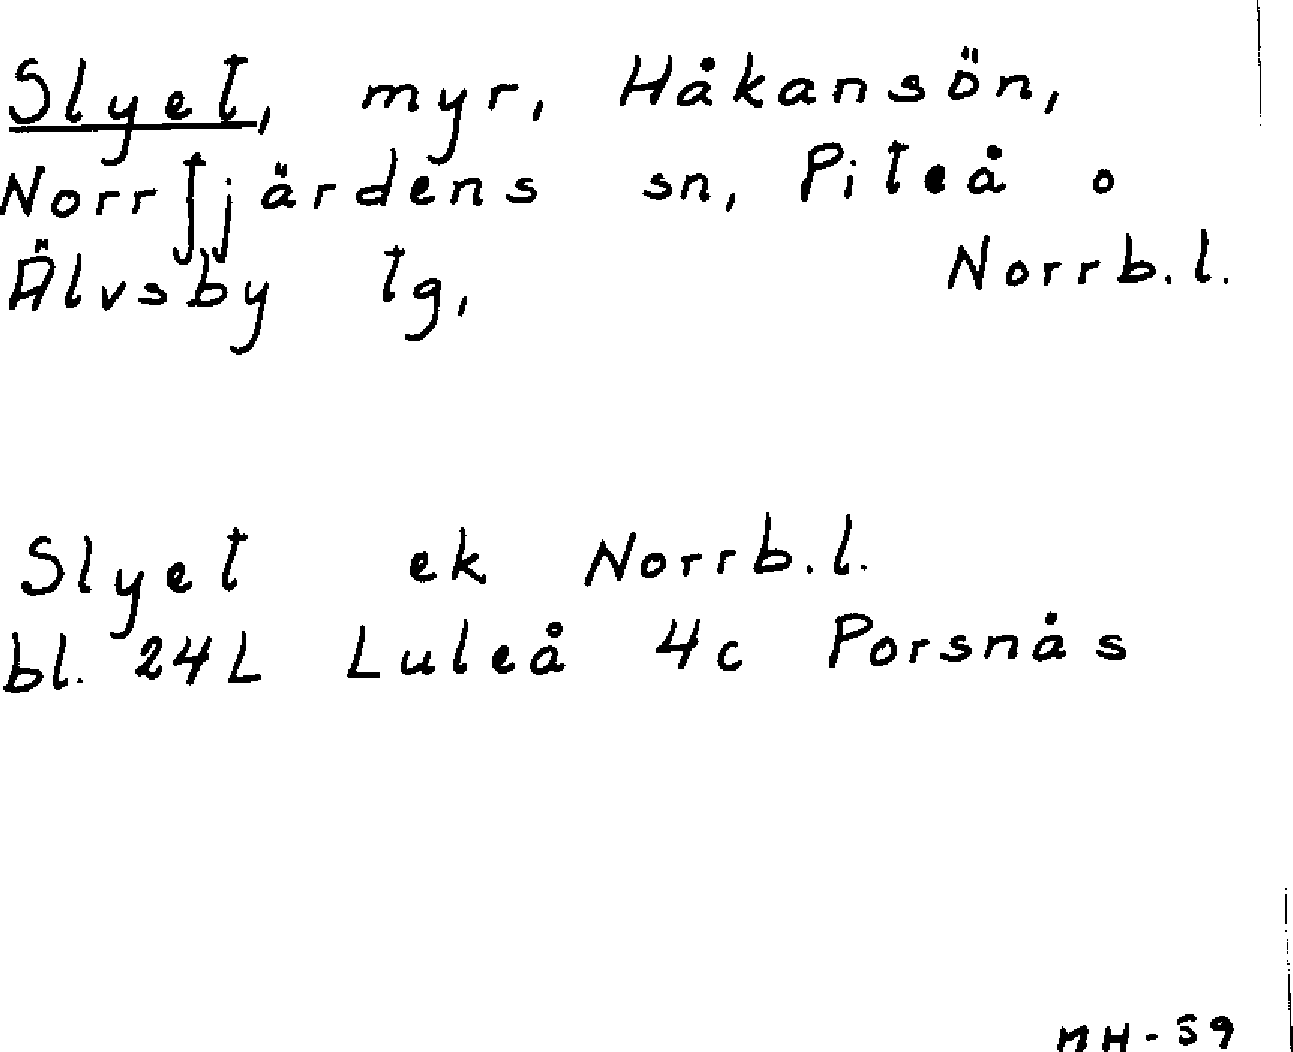 Slyet, myr, Håkansön,
Norrfjärdens sn, Piteå o
Älvsby tg, Norrb.l.
Slyet ek Norrb.l.
bl. 24L Luleå 4c Porsnäs
MH-59